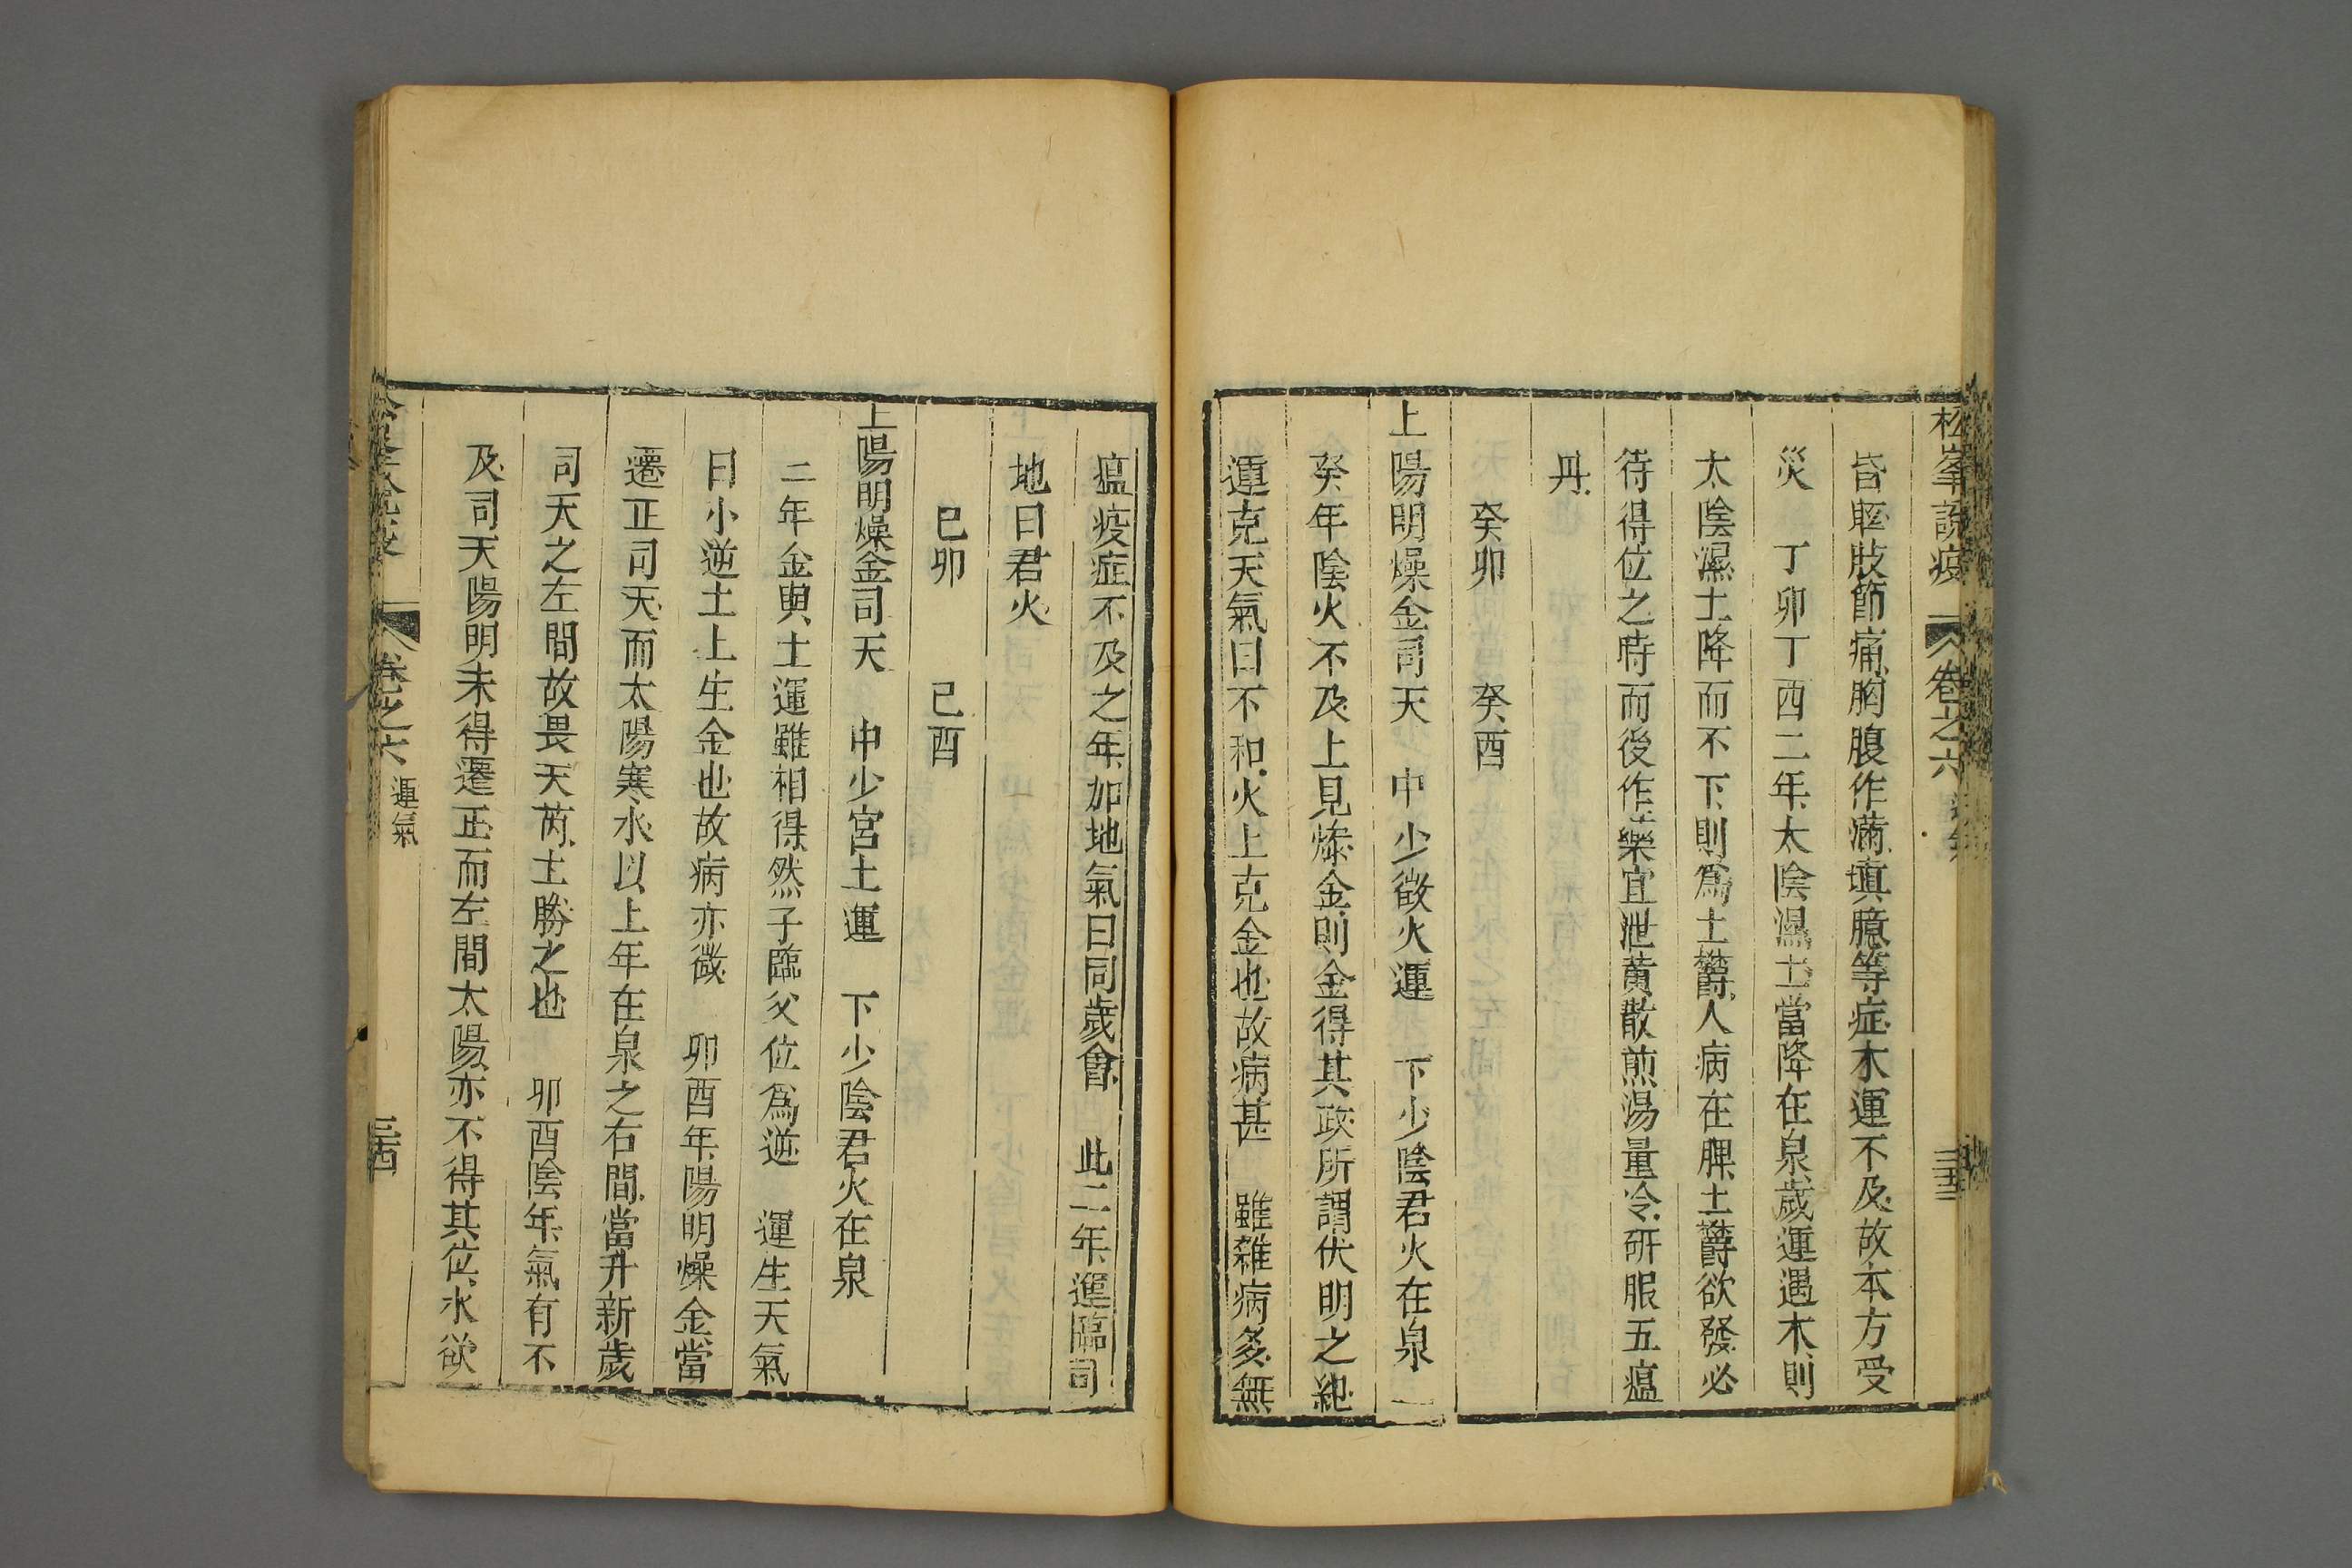 松峯說疫 卷之六
皆眍肢節痛胸腹作滿填臆等症木運不及故本方受
災 丁卯丁酉二年太陰濕土當降在泉歲運遇木則
太陰濕土降而不下則爲土欝人病在脾土欝欲發必
待得位之時而後作藥宜泄黃散煎湯量冷研服五瘟
丹
癸卯 癸酉
上陽明燥金司天 中少徵火運 下少陰君火在泉
癸年陰火不及上見燥金則金得其政所謂伏明之紀
運克天氣曰不和火上克金也故病甚 雖雜病多無
瘟疫症不及之年加地氣曰同歲會 此二年運臨司
地曰君火
已卯 已酉
上陽明燥金司天 中少宮土運 下少陰君火在泉
二年金與土運雖相得然子臨父位爲逆 運生天氣
曰小逆土上生金也故病亦微 卯酉年陽明燥金當
遷正司天而太陽寒水以上年在泉之右間當升新歲
司天之左間故畏天芮土勝之也 卯酉陰年氣有不
及司天陽明未得遷正而左間太陽亦不得其位水欲
卷之六 運氣 三十四